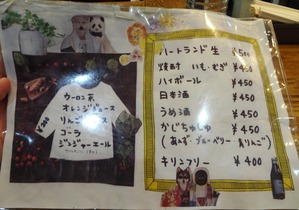 ウーロン茶
オレンジジュース
りんごジュース
コーラ
ジンジャーエール
ハートランド 生 ¥500
焼酎 いも・むぎ ¥450
ハイボール ¥450
日本酒 ¥450
うめ酒 ¥450
かじちゅしゅ ¥450
(あんず・ブルーベリー
キリンフリー ¥400